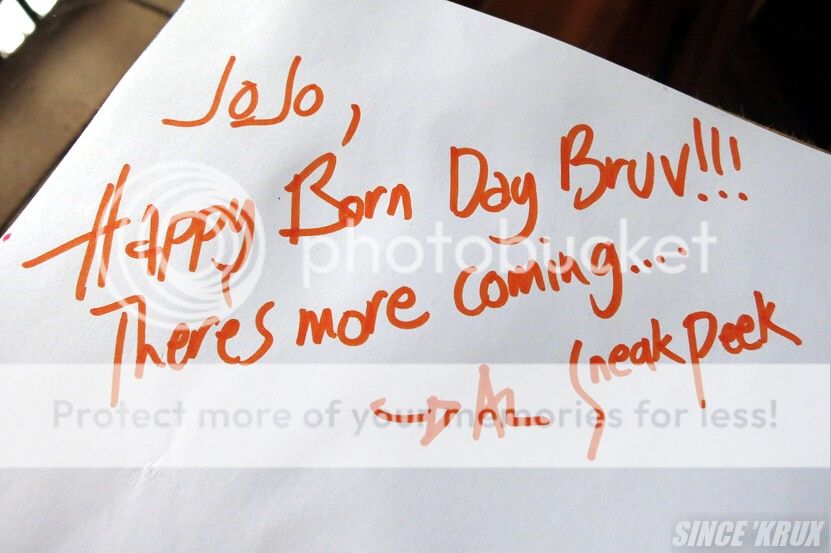 JoJo,
Happy Born Day Bruv!!!
photobucket
Theres more coming....
Sneak Peek
Protect more of your memories for less!
SINCE 'KRUX